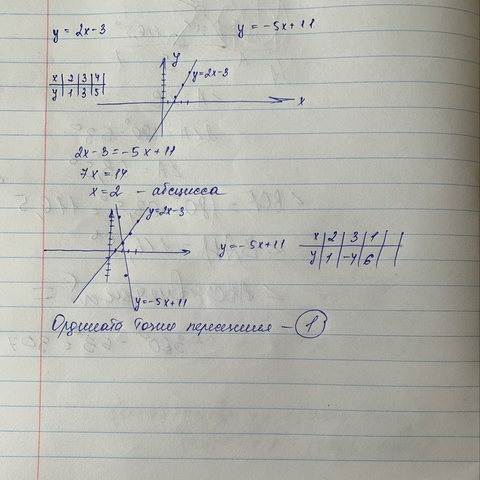 y = 2x-3
y = -5x+11
y
y=2x-3
x
x | 2 | 3 | 4 |
y | 1 | 3 | 5 |
2x-3=-5x+11
7x=14
x=2 - абсцисса
y=2x-3
y=-5x+11
x | 2 | 3 | 1 | |
y | 1 | -4 | 6 | |
y=-5x+11
Ордината точки пересечения - 1